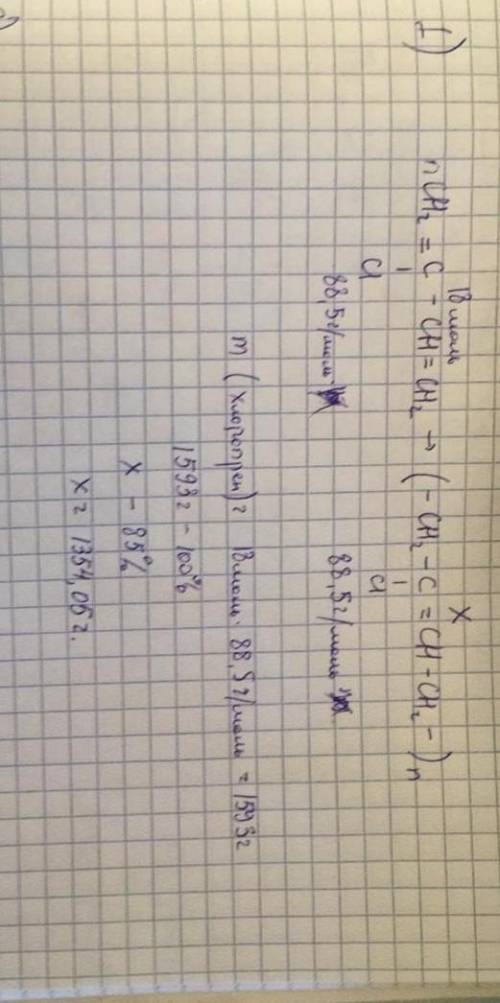 1)
18 моль X
nCH₂ = C - CH = CH₂ → (- CH₂ - C = CH - CH₂ -)n
Cl Cl
88,5 г/моль 88,5 г/моль
m (хлоропрен) = 18 моль · 88,5 г/моль = 1593 г
1593 г - 100%
x - 85%
x = 1354,05 г.